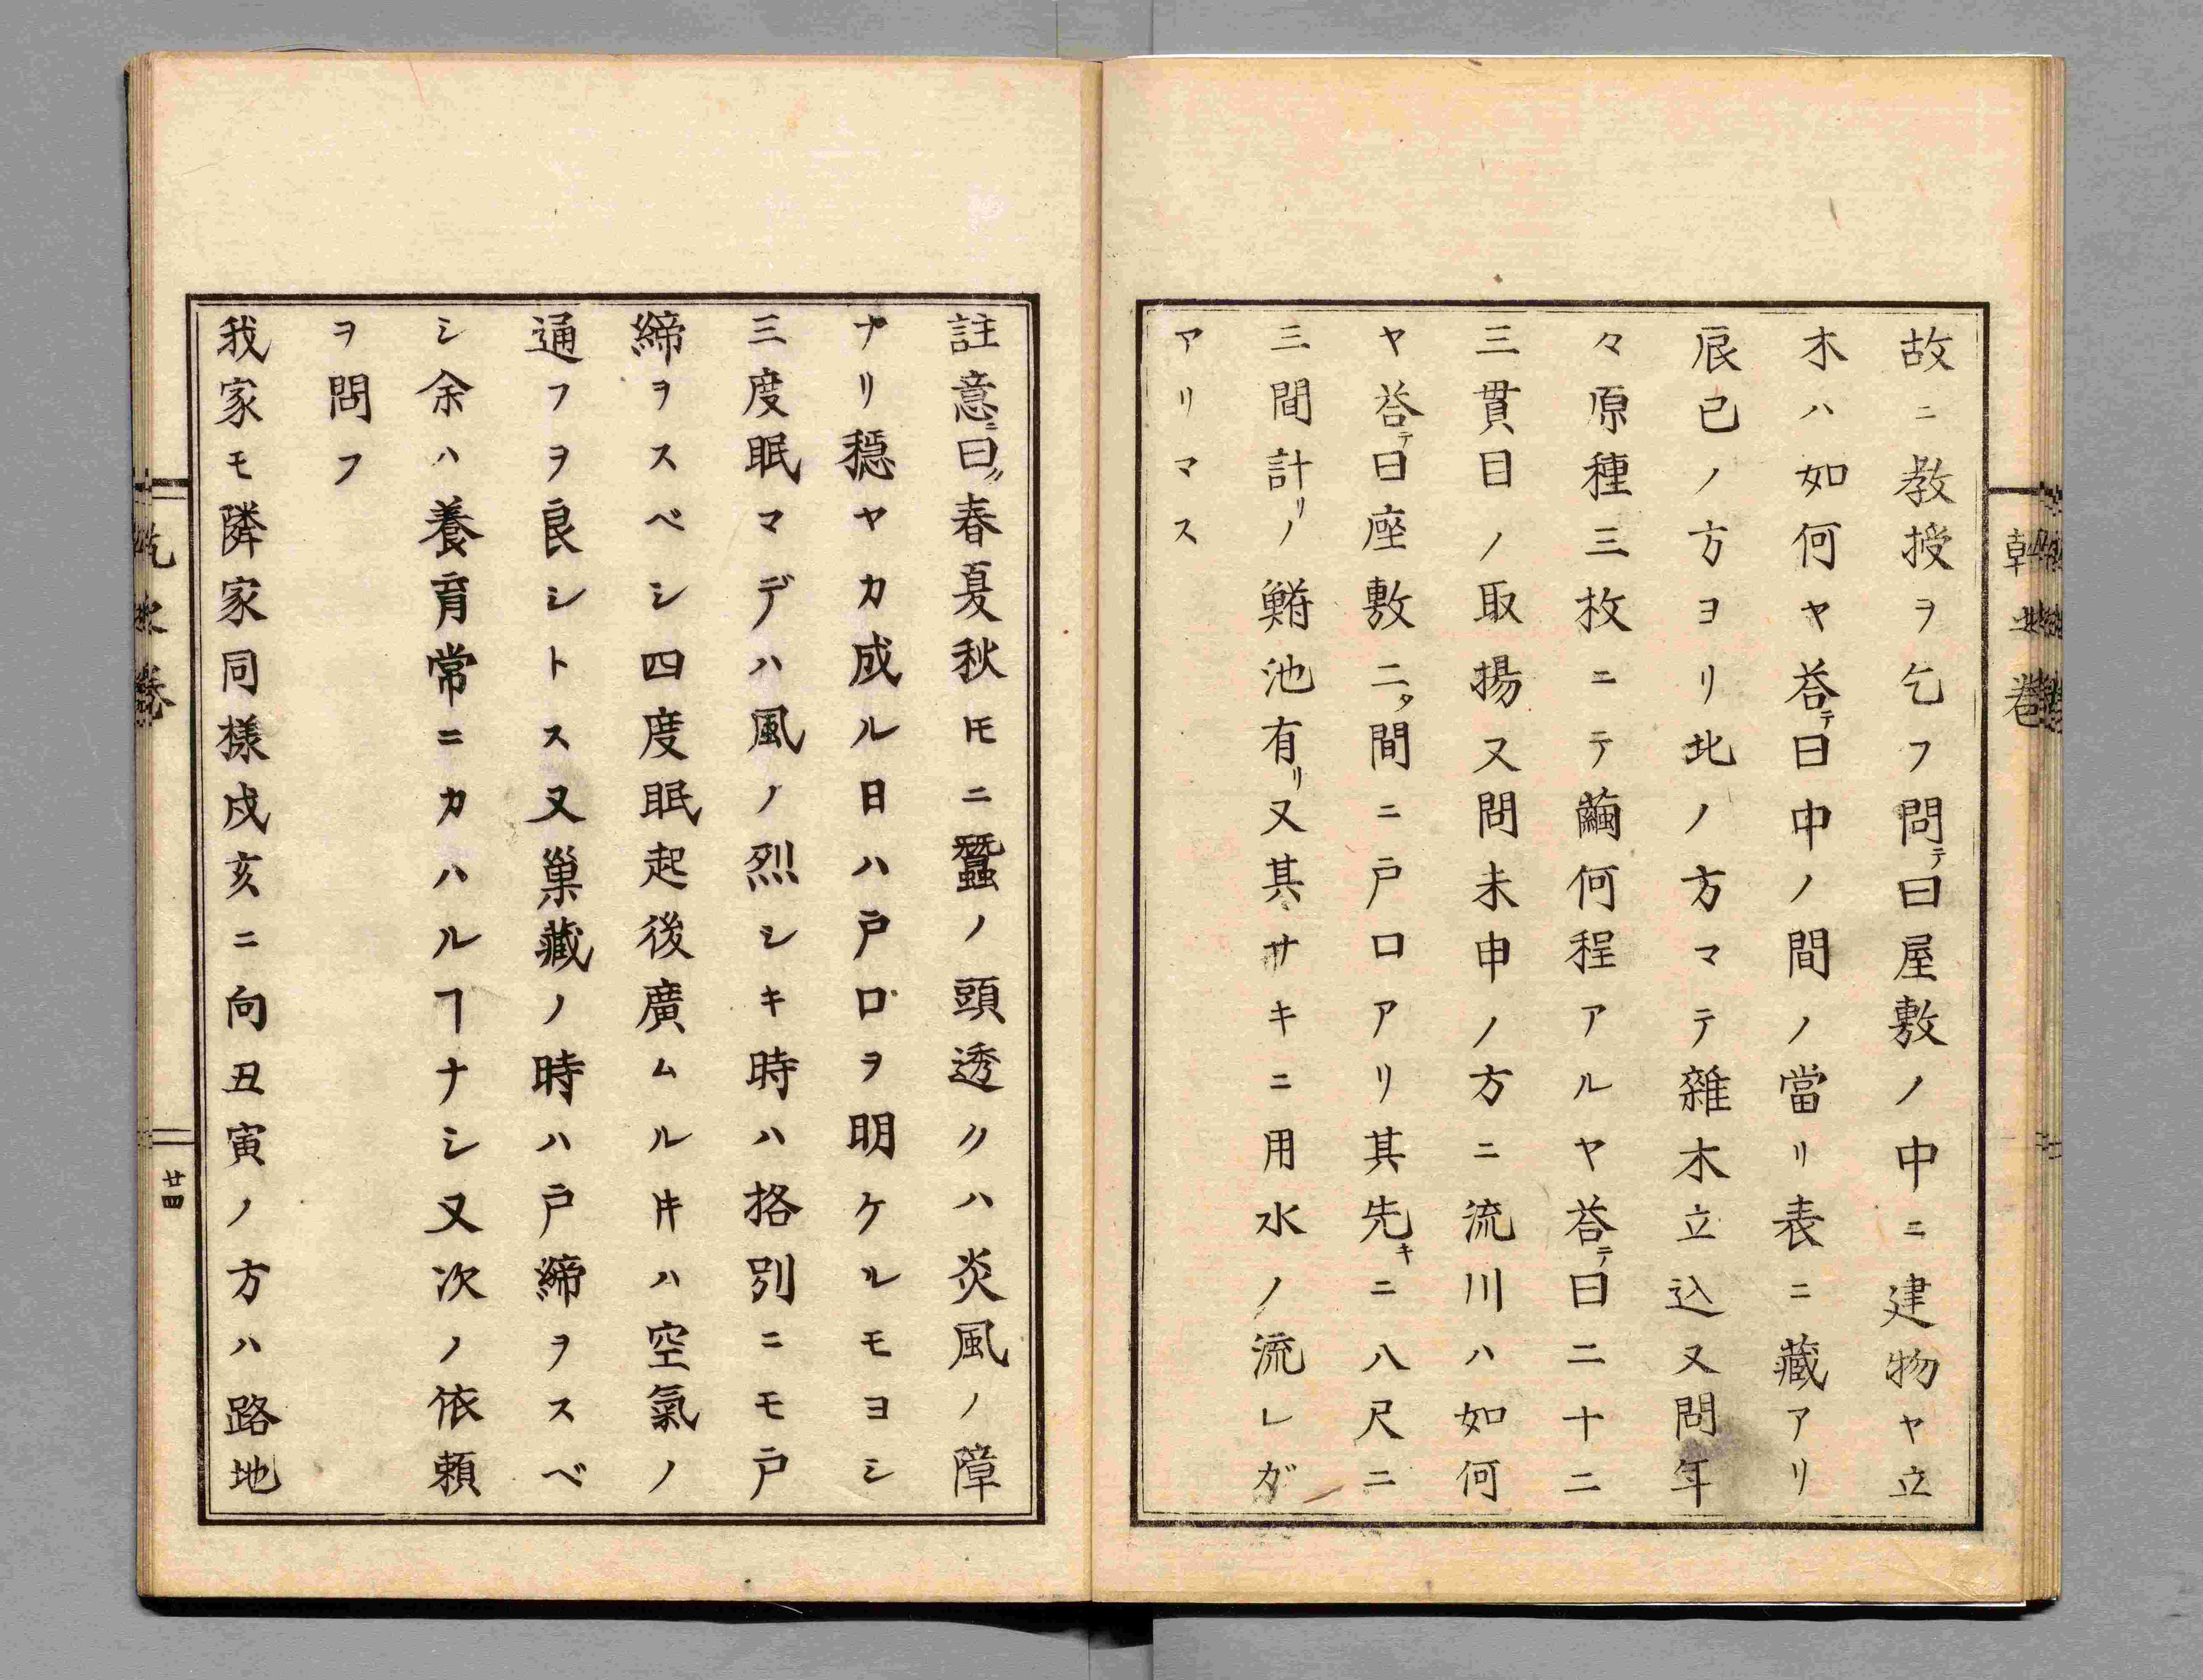 故ニ教授ヲ乞フ問テ曰屋敷ノ中ニ建物ヤ立
木ハ如何ヤ荅テ曰中ノ間ノ當リ表ニ藏アリ
辰巳ノ方ヨリ北ノ方マテ雜木立込又問年
々原種三枚ニテ繭何程アルヤ荅テ曰二十二
三貫目ノ取揚又問未申ノ方ニ流川ハ如何
ヤ荅テ曰座敷二タ間ニ戸口アリ其先キニ八尺ニ
三間計リノ鯏池有リ又其サキニ用水ノ流レガ
アリマス
註意ニ曰ク春夏秋𪜈ニ蠶ノ頭透クハ炎風ノ障
ナリ穏ヤカ成ル日ハ戸口ヲ明ケルモヨシ
三度眠マデハ風ノ烈シキ時ハ格別ニモ戸
締ヲスベシ四度眠起後廣ムル𪜈ハ空氣ノ
通フヲ良シトス又巢藏ノ時ハ戸締ヲスベ
シ余ハ養育常ニカハルヿナシ又次ノ依頼
ヲ問フ
我家モ隣家同樣戌亥ニ向丑寅ノ方ハ路地
廿四